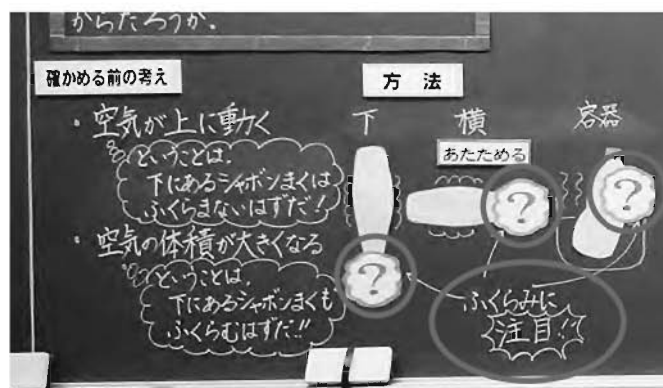 からだろうか。
確かめる前の考え
・空気が上に動く
ということは、
下にあるシャボンまくは
ふくらまないはずだ!
・空気の体積が大きくなる
ということは、
下にあるシャボンまくも
ふくらむはずだ!!
方法
下
横
容器
あたためる
?
?
?
ふくらみに
注目!!